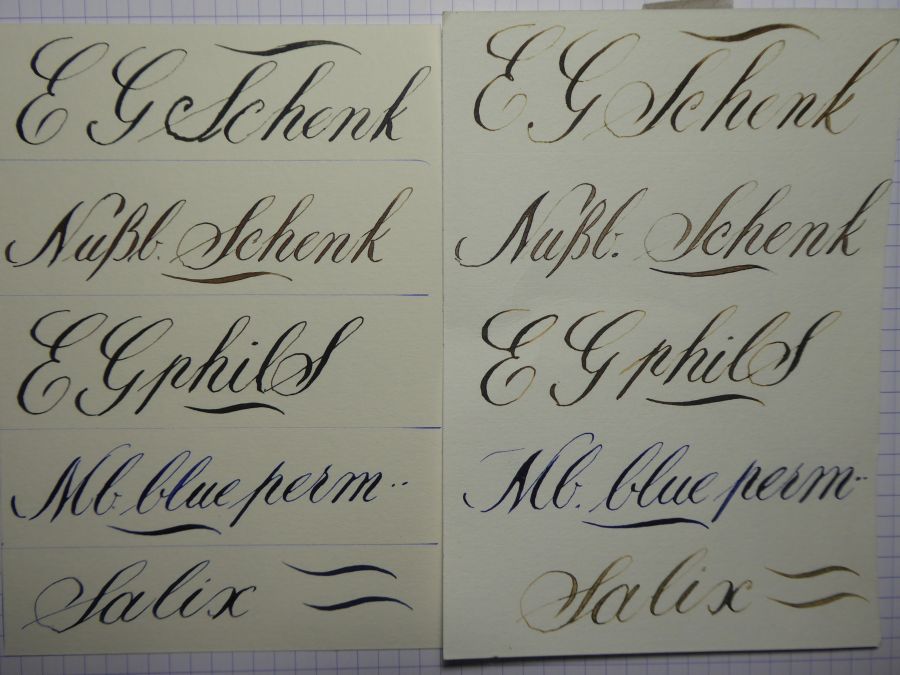 E G Schenk
Nußb. Schenk
E G philS
Mb. blue perm..
Salix
E G Schenk
Nußb. Schenk
E G philS
Mb. blue perm..
Salix